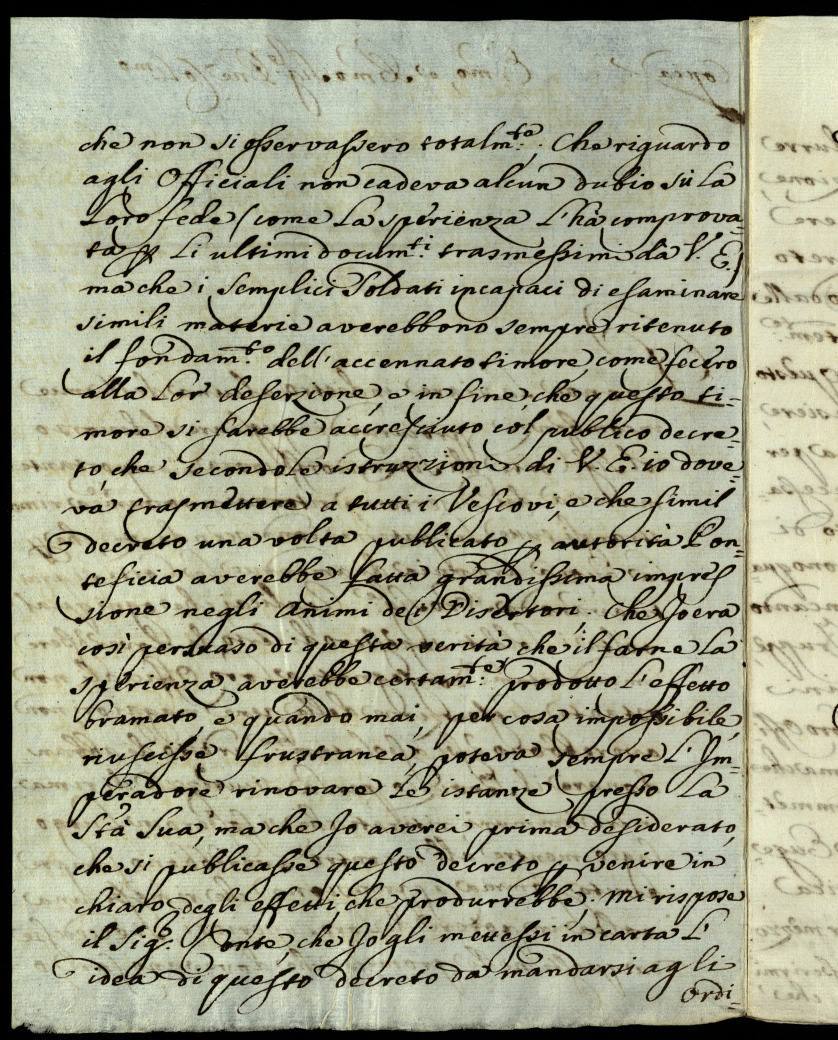 che non si osservassero totalm:to. Che riguardo
agli Officiali non cadeva alcun dubio sù la
Loro fede (come la sperienza l'hà comprova=
ta p li ultimi docum:ti trasmessimi dà V. E.)
ma che i semplici Soldati incapaci di esaminare
simili materie averebbono sempre ritenuto
il fondam:to dell'accennato timore, come fecero
alla lor deserzione, e in fine, che questo ti=
more si sarebbe accresciuto col publico decre=
to, che secondo le istruzzioni di V. E. io dove=
và trasmettere à tutti i Vescovi, e che simil
decreto una volta publicato p autorità Pon=
teficia averebbe fatta grandissima impres
sione negli animi de' Disertori. Che Jo era
così persuaso di questa verità che il farne la
sperienza averebbe certam:te prodotto l'effetto
bramato, e quando mai, per cosa impossibile,
riuscisse frustranea, poteva sempre l'Im=
peradore rinovare le istanze presso la
Stà Sua, ma che Jo averei prima desiderato,
che si publicasse questo decreto p venire in
chiaro degli effetti, che produrrebbe. Mi rispose
il Sig:r Conte, che Jo gli mettessi in carta l'
idea di questo decreto da mandarsi agli
Ordi=